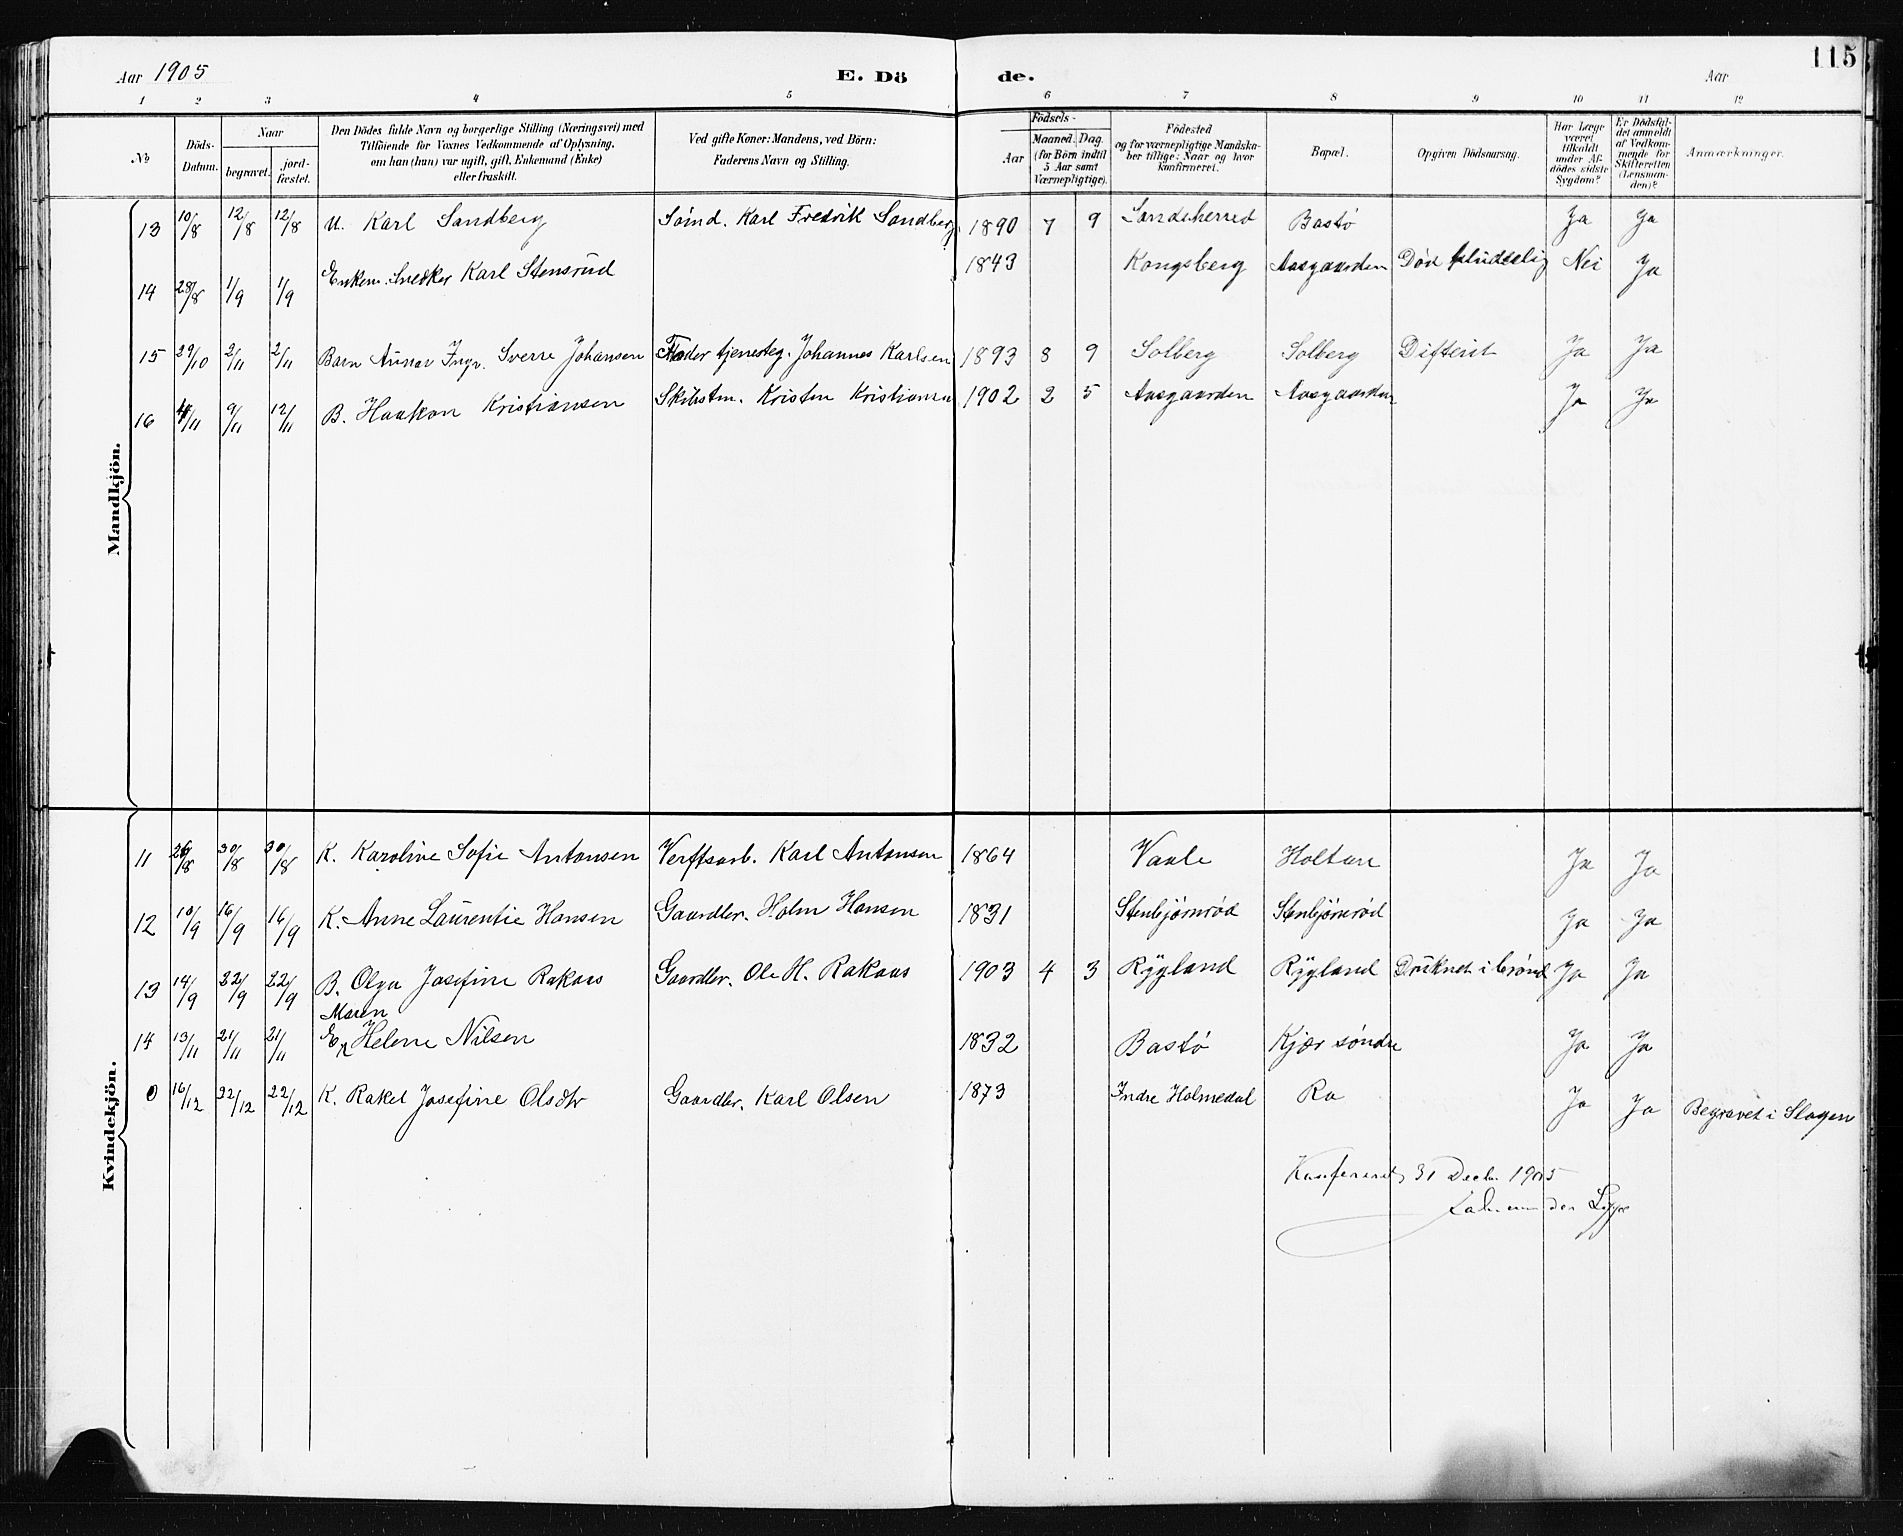 115
Aar 1905 E. Dö de. Aar
1 2 3 4 5 6 7 8 9 10 11 12
No
Döds-Datum.
Naar
begravet.
jord-fæstet.
Den Dödes fulde Navn og borgerlige Stilling (Næringsvei) med
Tilföiende for Voxnes Vedkommende af Oplysning,
om han (hun) var ugift, gift, Enkemand (Enke)
eller fraskilt.
Ved gifte Koner: Mandens, ved Börn:
Faderens Navn og Stilling.
Födsels-
Aar
Maaned. Dag.
(for Börn indtil
5 Aar samt
Værnepligtige).
Födested
og for værnepligtige Mandska-
ber tillige: Naar og hvor
konfirmeret.
Bopæl.
Opgiven Dödsaarsag.
Har Læge
været
tilkaldt
under Af-
dödes sidste
Sygdom?
Er Dödsfal-
det anmeldt
af Vedkom-
mende for
Skifteretten
(Lensman-
den)?
Anmærkninger.
Mandkjön.
13 10/8 12/8 12/8 U. Karl Sandberg Sömd. Karl Fredrik Sandberg. 1890 7 9 Sandeherred Bastø Ja Ja
14 28/8 1/9 1/9 Enkem. Snedker Karl Stensrud 1843 Kongsberg Aasgaarden Død pludselig Nei Ja
15 29/10 2/11 2/11 Barn Gunnar Ingv. Sverre Johansen Fader tjenesteg. Johannes Karlsen 1893 8 9 Solberg Solberg Difterit Ja Ja
16 4/11 9/11 12/11 B. Haakon Kristiansen Skibstm. Kristen Kristiansen 1902 2 5 Aasgaarden Aasgaarden Ja Ja
Kvindekjön.
11 26/8 30/8 30/8 K. Karoline Sofie Antonsen Verftsarb. Karl Antonsen 1864 Vaale Holtan Ja Ja
12 10/9 16/9 16/9 K. Anne Laurentie Hansen Gaardbr. Holm Hansen 1831 Stenbjørnrød Stenbjørnrød Ja Ja
13 14/9 22/9 22/9 B. Olga Josefine Rakaas Gaardbr. Ole H. Rakaas 1903 4 3 Rygland Rygland Druknet i brønd Ja Ja
Maren
14 13/11 21/11 21/11 E. Helene Nilsen 1832 Bastø Kjær søndre Ja Ja
0 16/12 22/12 22/12 K. Rakel Josefine Olsdtr Gaardbr. Karl Olsen 1873 Indre Holmedal Ra Ja Ja Begravet i Slagen
Konfereret 31 Decbr. 1905